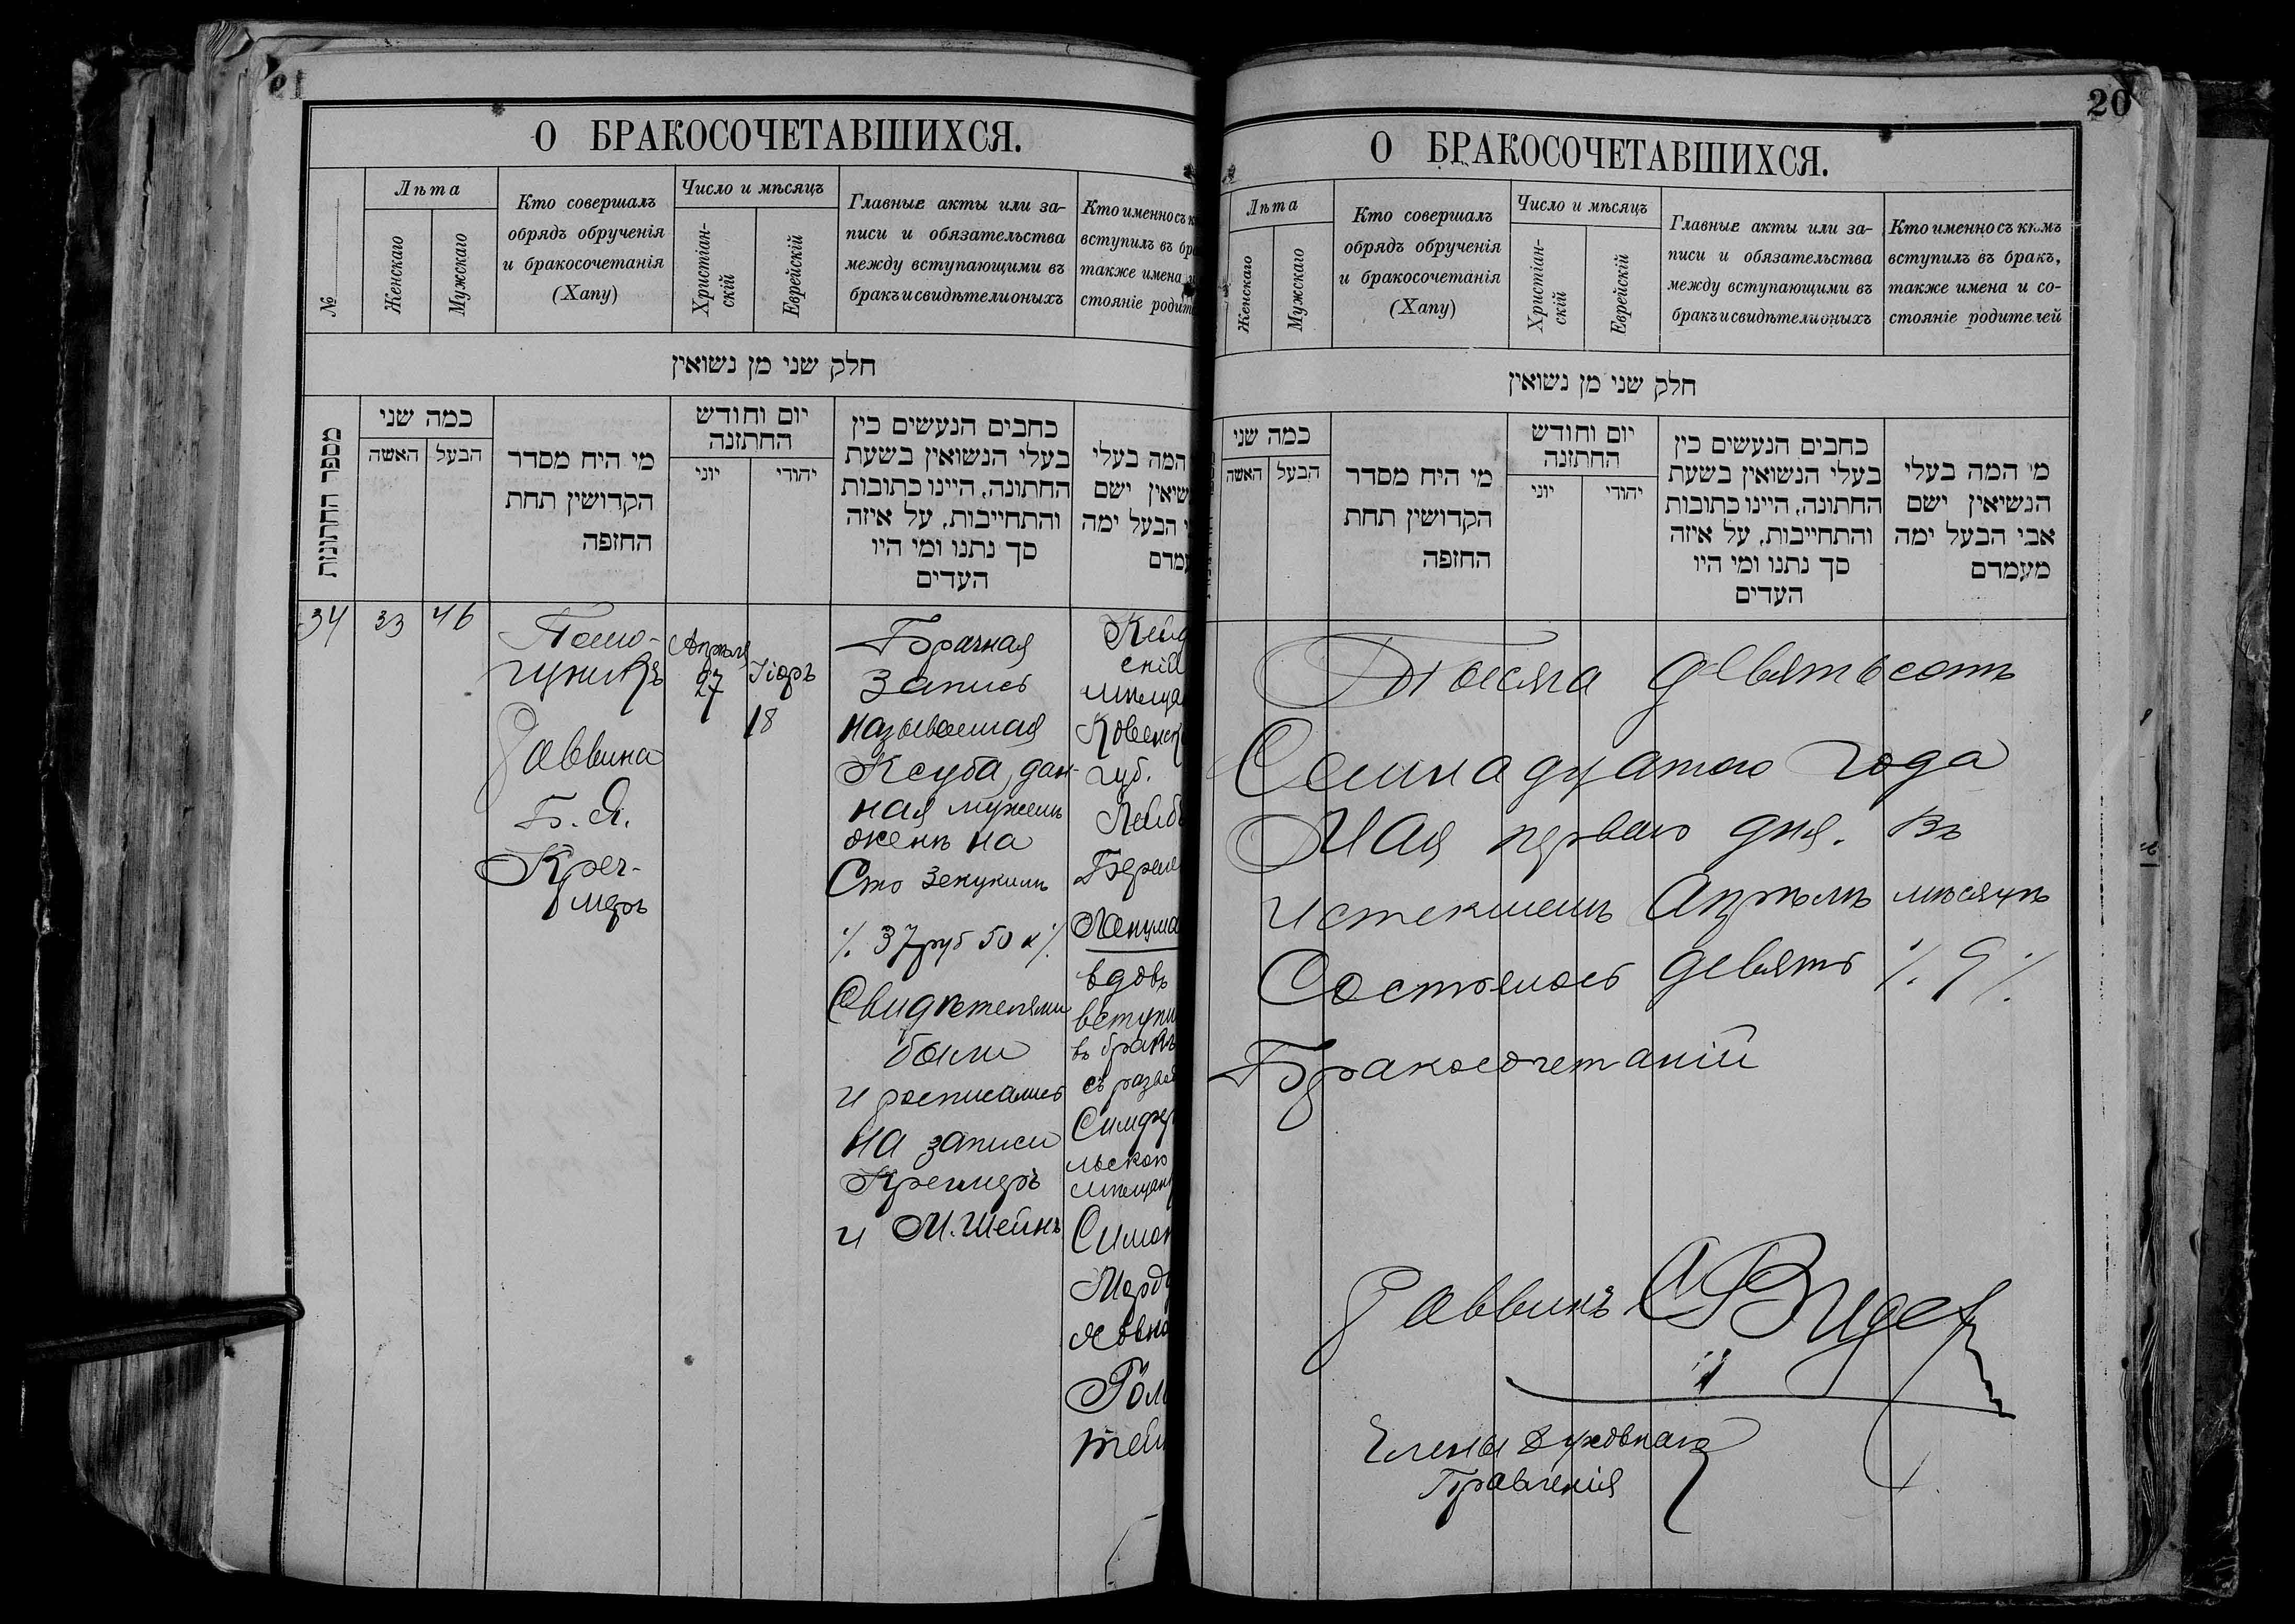 О БРАКОСОЧЕТАВШИХСЯ.
№
Лѣта
Женскаго
Мужскаго
Кто совершалъ
обрядъ обрученія
и бракосочетанія
(Хапу)
Число и мѣсяцъ
Христіан-
скій
Еврейскій
Главные акты или за-
писи и обязательства
между вступающими въ
бракъ и свидѣтели оныхъ
Кто именно съ к
вступилъ въ бра
также имена и
стояніе родит
חלק שני מן נשואין
מספר החתונות
כמה שני
האשה
הבעל
מי היח מסדר
הקדושין תחת
החזפה
יום וחודש
החתזנה
יוני
יהודי
כחבים הנעשים כין
בעלי הנשואין בשעת
החתונה, היינו כתובות
והתחייבות, על איזה
סך נתנו ומי היו
העדים
המה בעלי
שיאין ישם
י הבעל ימה
עמדם
34
33
46
Помо-
щникъ
Раввина
Б. Я.
Креч-
меръ
Апрѣля
27
Іоръ
18
Брачная
Запись
называемая
Ксуба, дан-
ная мужемъ
женѣ на
Сто Зекукимъ
% 37 руб 50 к %
Свидѣтелями
были
и росписались
на записи
Кремеръ
и М. Шейнъ
Кейд
скій
мѣща
Ковенск
губ.
Лейбъ
Берел
вдовъ
вступи
въ бракъ
съ развед
Симфер
льскою
мѣщан
Симон
Морду
ховно
Гол
тейн
20
О БРАКОСОЧЕТАВШИХСЯ.
Лѣта
Женскаго
Мужскаго
Кто совершалъ
обрядъ обрученія
и бракосочетанія
(Хапу)
Число и мѣсяцъ
Христіан-
скій
Еврейскій
Главные акты или за-
писи и обязательства
между вступающими въ
бракъ и свидѣтели оныхъ
Кто именно съ кѣмъ
вступилъ въ бракъ,
также имена и со-
стояніе родителей
חלק שני מן נשואין
כמה שני
האשה
הבעל
מי היח מסדר
הקדושין תחת
החזפה
יום וחודש
החתזנה
יוני
יהודי
כחבים הנעשים כין
בעלי הנשואין בשעת
החתונה, היינו כתובות
והתחייבות, על איזה
סך נתנו ומי היו
העדים
מי המה בעלי
הנשיאין ישם
אבי הבעל ימה
מעמדם
Тысяча девятьсотъ
Семнадцатаго года
Мая перваго дня. Въ
истекшемъ Апрѣлѣ мѣсяцѣ
Состоялось девять % 9 %
Бракосочетаній
Раввинъ
Члены Духовнаго
Правленія